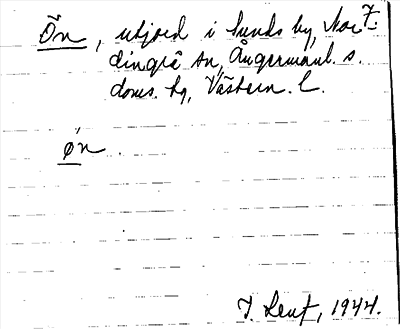 Ön, utjord i Sunds by, Nor-
dingrå sn, Ångermanl. s.
doms. hg, Västern. l.
øn.
1944.